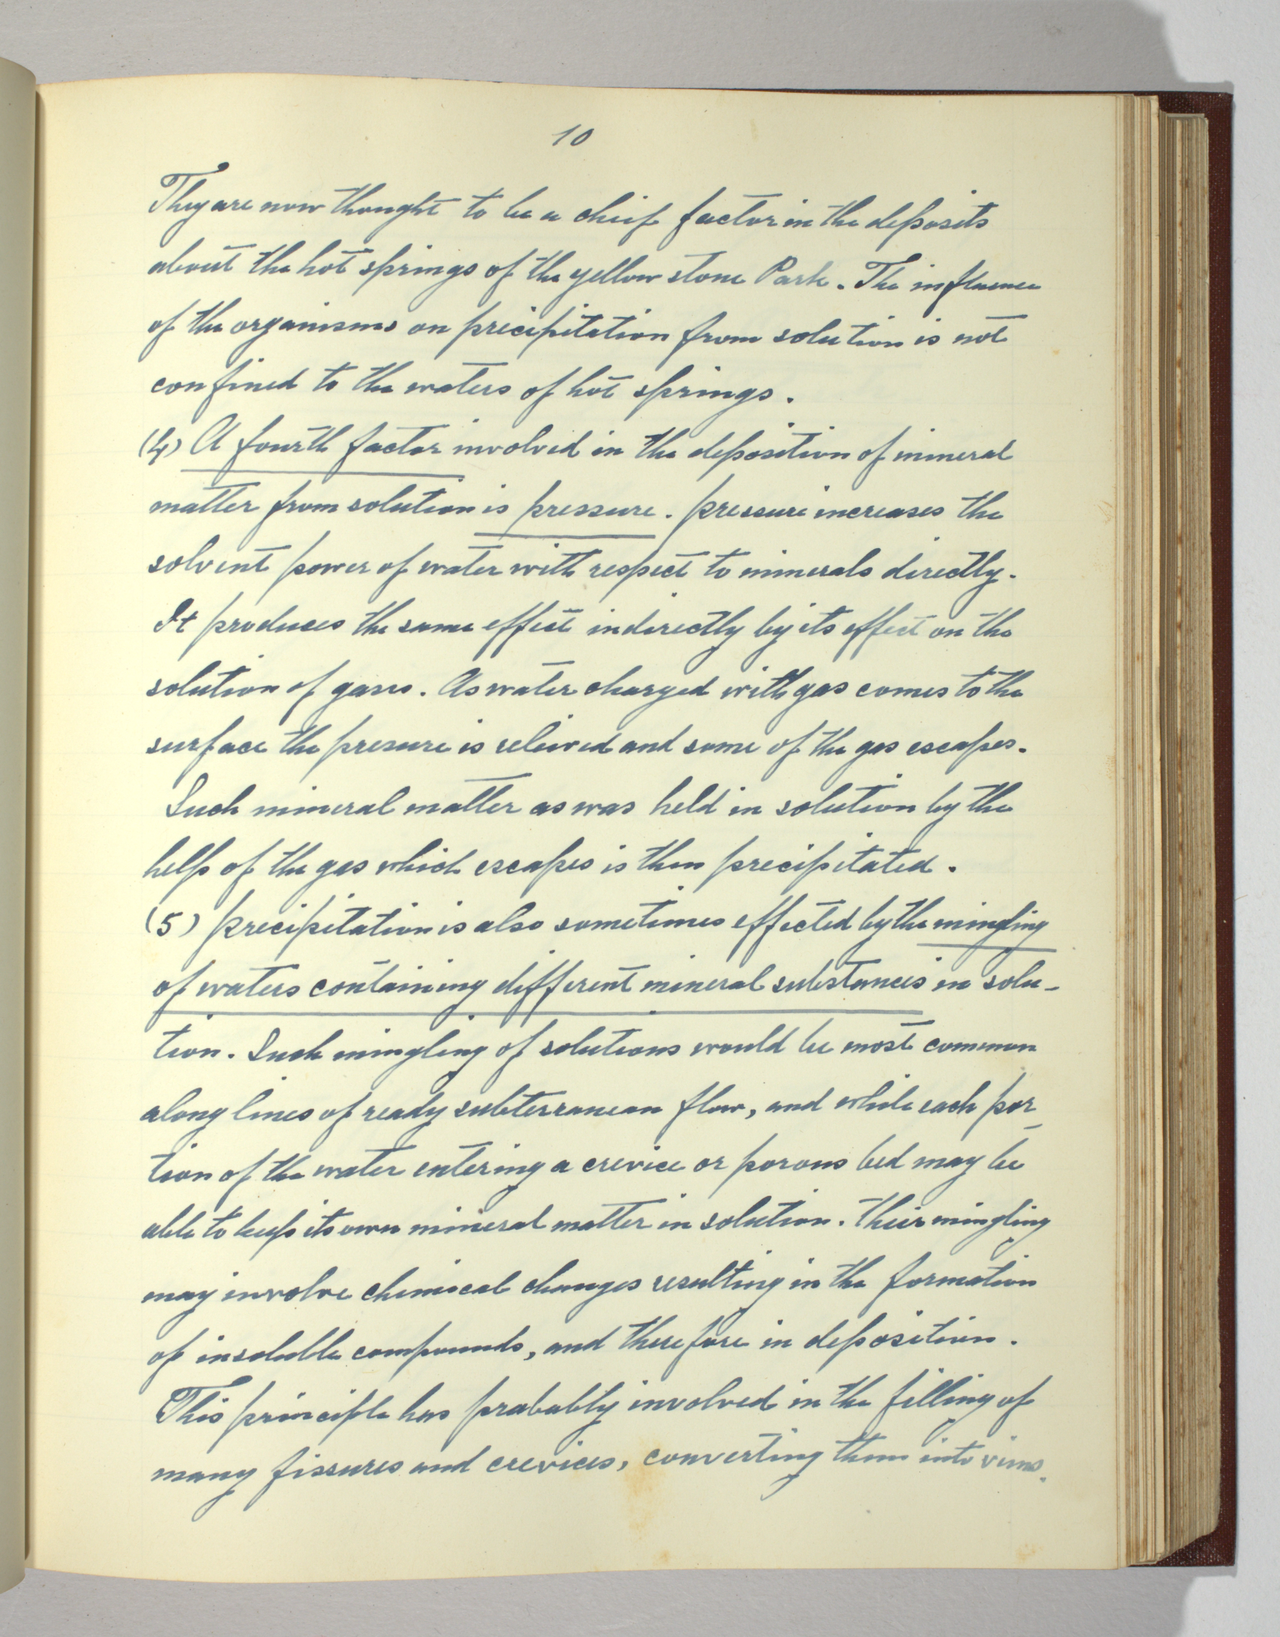 10
They are now thought to be a cheif factor in the deposits
about the hot springs of the yellow stone Park. The influence
of the organisms on precipitation from solution is not
confined to the waters of hot springs.
(4) A fourth factor involved in the deposition of mineral
matter from solution is pressure. pressure increases the
solvent power of water with respect to minerals directly.
It produces the same effect indirectly by its effect on the
solution of gases. As water charged with gas comes to the
surface the presure is releived and some of the gas escapes.
Such mineral matter as was held in solution by the
help of the gas which escapes is then precipitated.
(5) precipitation is also sometimes effected by the mingling
of waters containing different mineral substances in solu-
tion. Such mingling of solutions would be most common
along lines of ready subterranean flow, and while each por-
tion of the water entering a crevice or porous bed may be
able to keep its own mineral matter in solution. their mingling
may involve chemical changes resulting in the formation
of insoluble compounds, and therefore in deposition.
This principle has probably involved in the filling of
many fissures and crevices, converting them into viens.